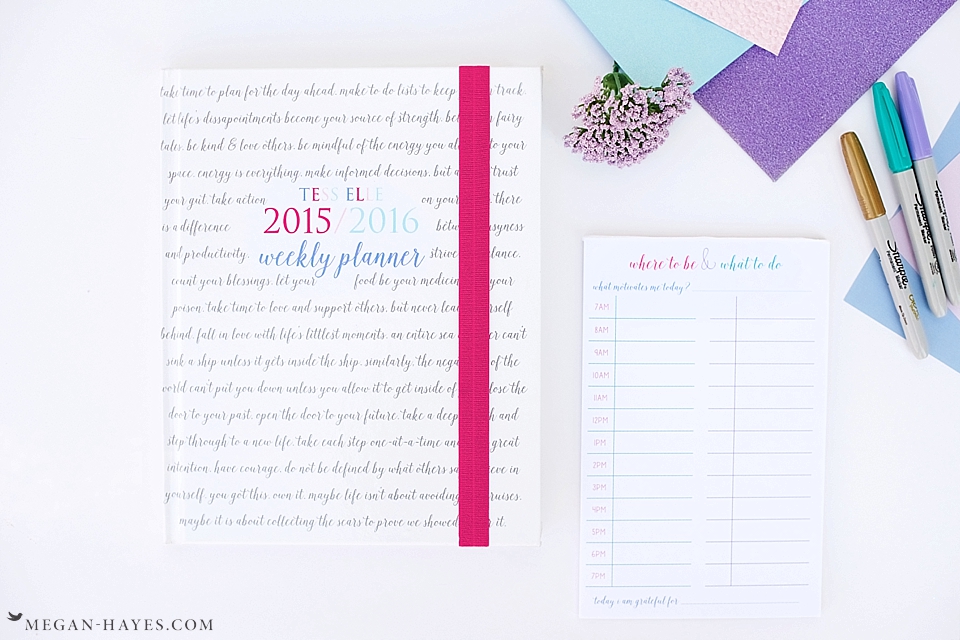 take time to plan for the day ahead. make to do lists to keep track.
let life's dissapointments become your source of strength. fairy
tales. be kind & love others. be mindful of the energy you to your
space. energy is everything. make informed decisions. but trust
your gut. take action on your there
TESS ELLE
is a difference busyness
2015/2016
and productivity. strive
weekly planner
count your blessings. let your food be your medicine your
poison. take time to love and support others. but never
behind. fall in love with life's littlest moments. an entire sea can't
sink a ship unless it gets inside the ship. similarly. the of the
world can't put you down unless you allow it to get inside of the
door to your past. open the door to your future. take a deep and
step through to a new life. take each step one-at-a-time and great
intention. have courage. do not be defined by what others in
yourself. you got this. own it. maybe life isn't about avoiding bruises.
maybe it is about collecting the scars to prove we showed it.
where to be & what to do
what motivates me today?
7AM
8AM
9AM
10AM
11AM
12PM
1PM
2PM
3PM
4PM
5PM
6PM
7PM
today i am grateful for
Sharpie
Sharpie
Sharpie
MEGAN-HAYES.COM